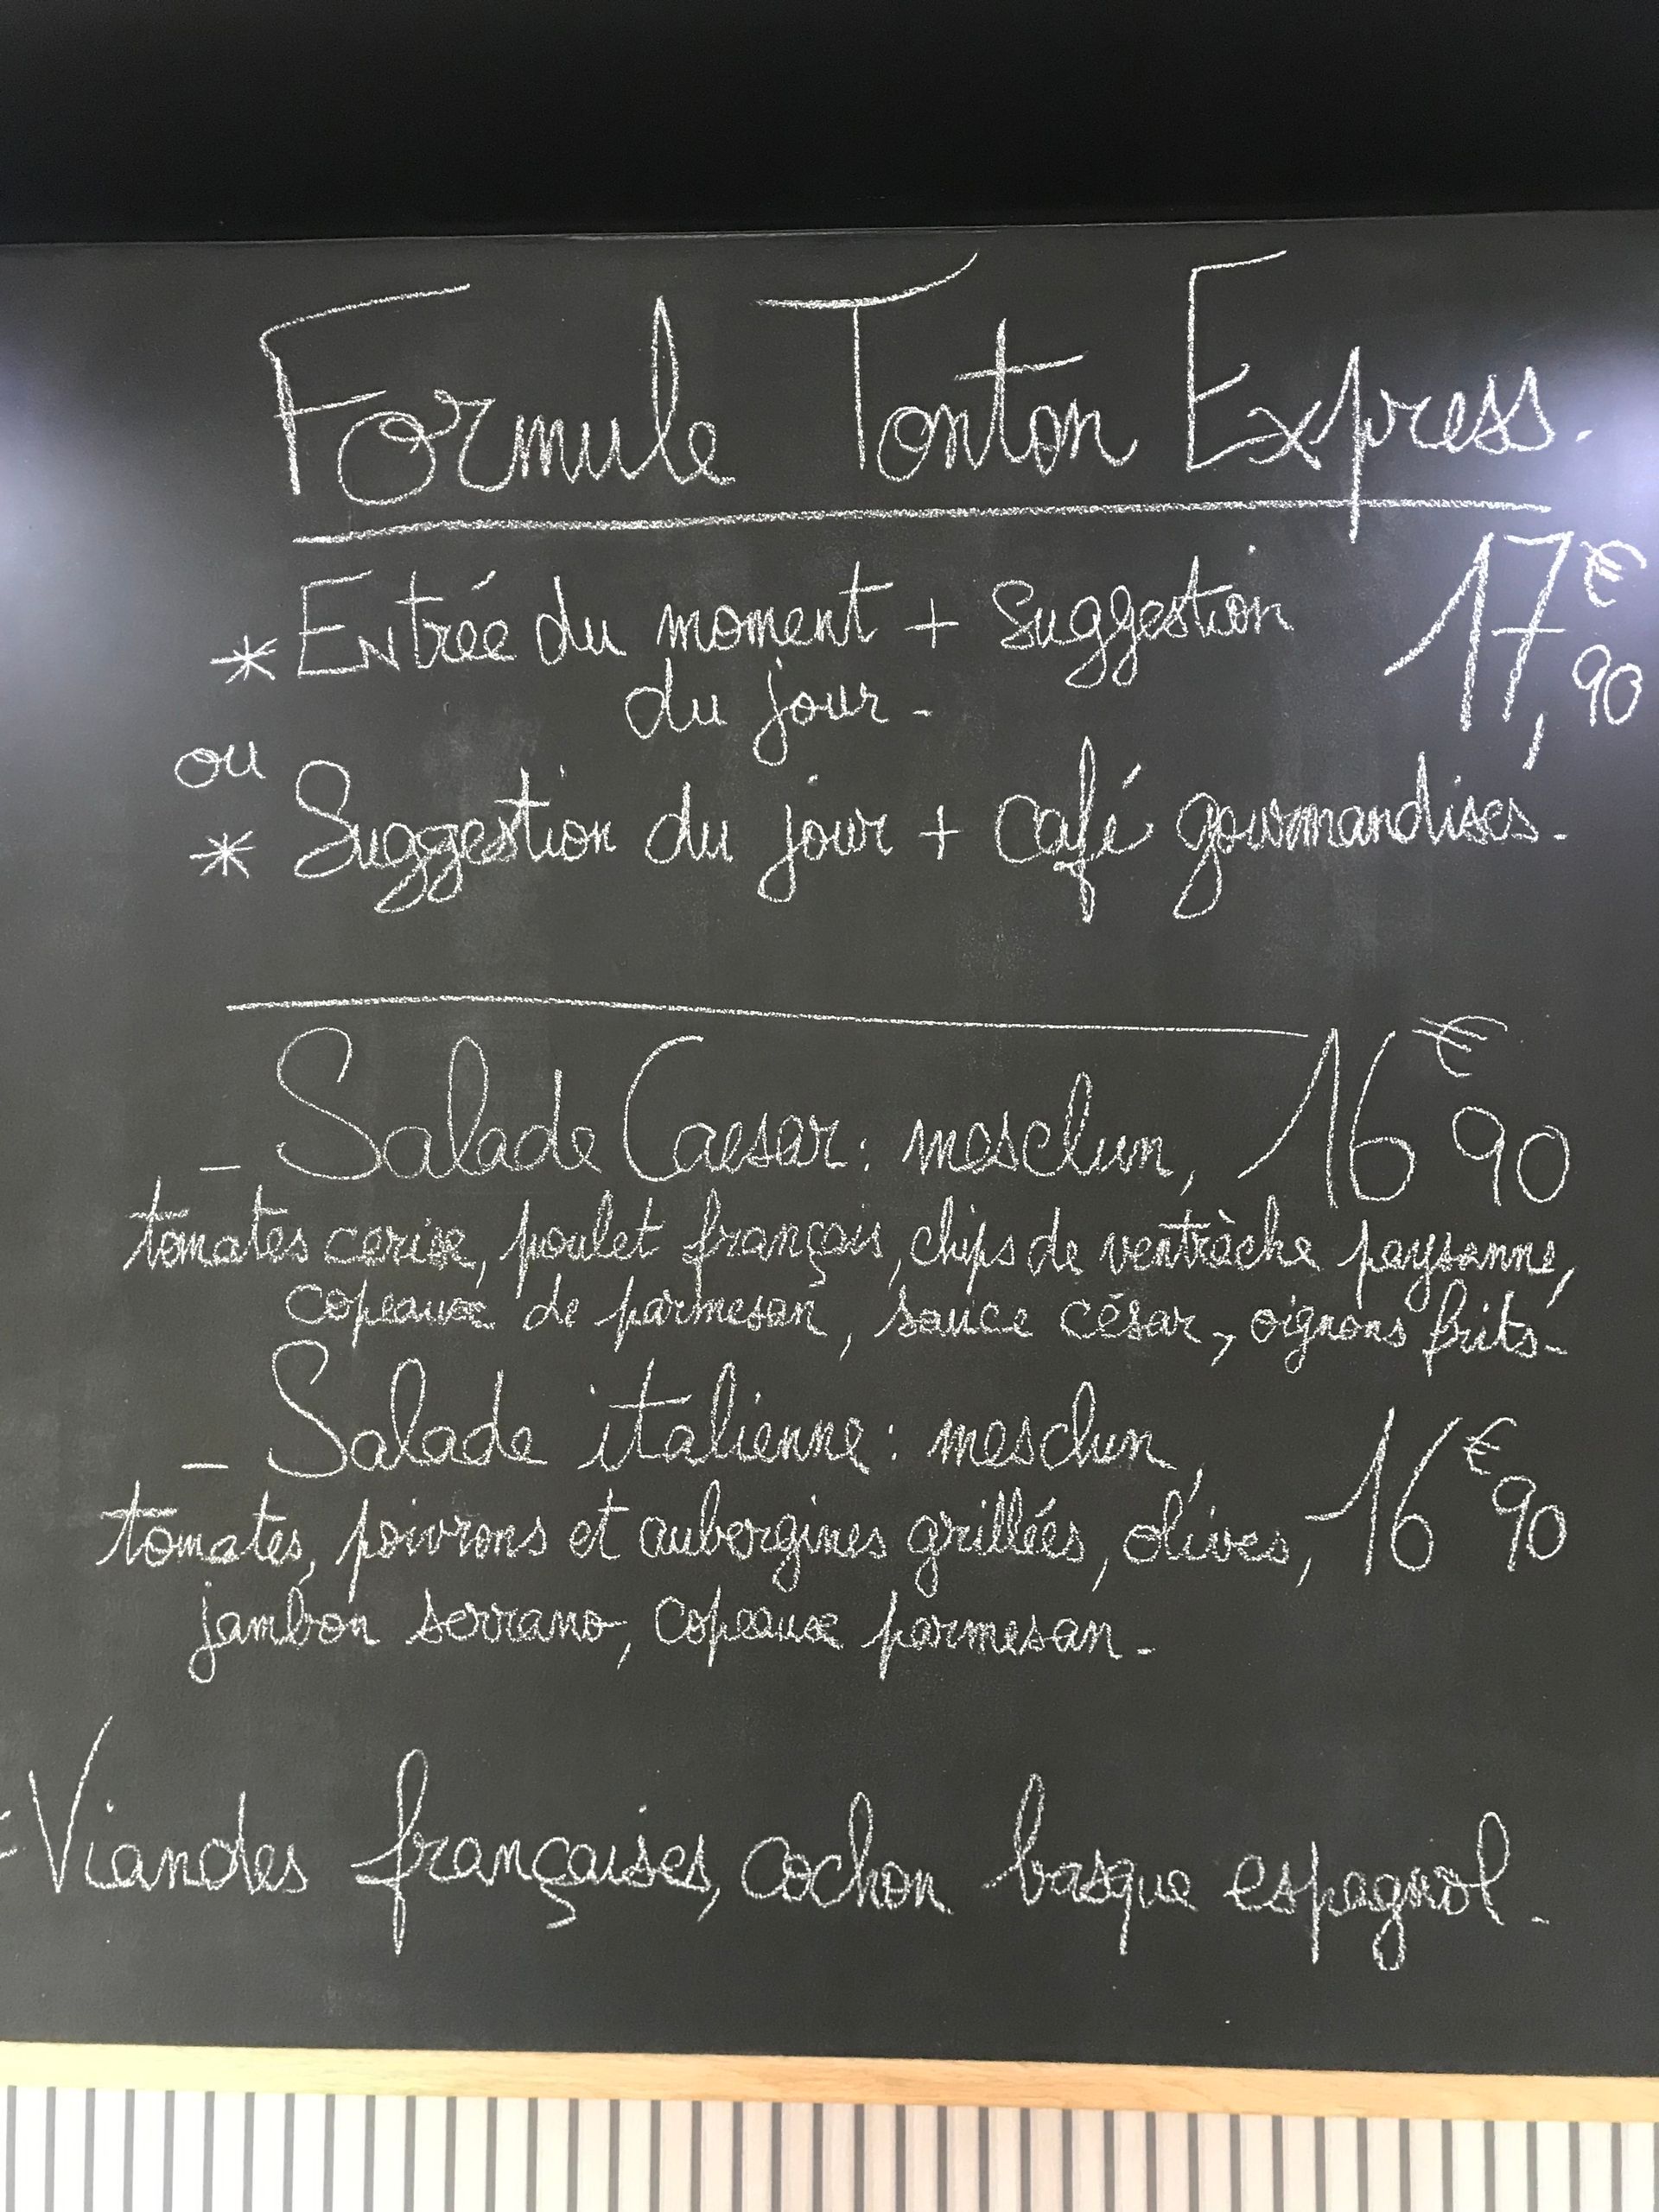 Formule Tonton Express.
* Entrée du moment + Suggestion 17,€90
du jour.
ou
* Suggestion du jour + Café gourmandises.
- Salade Caesar : mesclun, 16€90
tomates cerise, poulet français, chips de ventrèche paysanne,
copeaux de parmesan, sauce césar, oignons frits.
- Salade italienne : mesclun,
tomates, poivrons et aubergines grillées, olives, 16€90
jambon serrano, copeaux parmesan.
Viandes françaises, cochon basque espagnol.